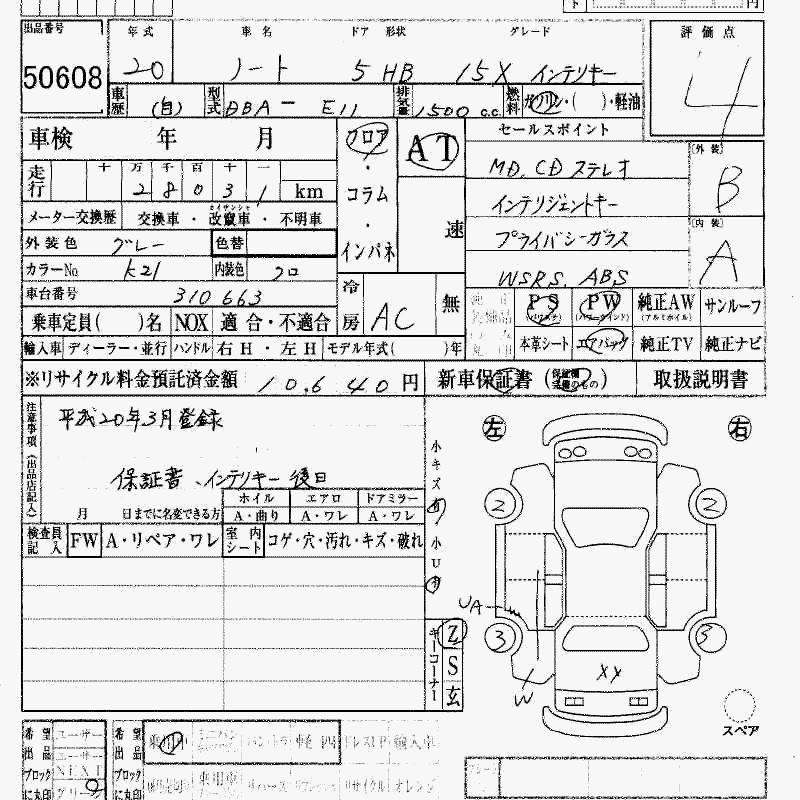 出品番号 年式 車名 ドア 形状 グレード 評価点
50608 20 ノート 5 HB 15X インテリキー 4
車歴 (自) 型式 DBA - E11 排気量 1500 c.c. 燃料 ガソリン・( )・軽油
車検 年 月 フロア AT セールスポイント (外装)
走行 十 万 千 百 十 一 ・ MD, CD ステレオ B
2 8 0 3 1 km コラム インテリジェントキー
メーター交換歴 交換車・改竄車・不明車 ・ 速 プライバシーガラス (内装)
外装色 グレー 色替 インパネ WSRS, ABS A
カラーNo K21 内装色 クロ
車台番号 310663 冷房 AC 無 PS PW 純正AW サンルーフ
乗車定員( )名 NOX 適合・不適合 本革シート エアバッグ 純正TV 純正ナビ
輸入車 ディーラー・並行 ハンドル 右H・左H モデル年式( )年
※リサイクル料金預託済金額 10,640 円 新車保証書 (保証欄完備のもの) 取扱説明書
注意事項(出品店記入) 平成20年3月登録 左 右
保証書、インテリキー後日 小キズ 有
ホイル エアロ ドアミラー
月 日までに名変できる方 A・曲り A・ワレ A・ワレ 2 2
検査員記入 FW A・リペア・ワレ 室内シート コゲ・穴・汚れ・キズ・破れ 小U
UA
キーコーナー Z 3 3
S XX
玄 W
スペア
希望出品ブロックに丸印 ユーザー 乗用車 ミニバン 軽 輸入車
ユーザーNEXT 乗用車 リサイクル オレンジ